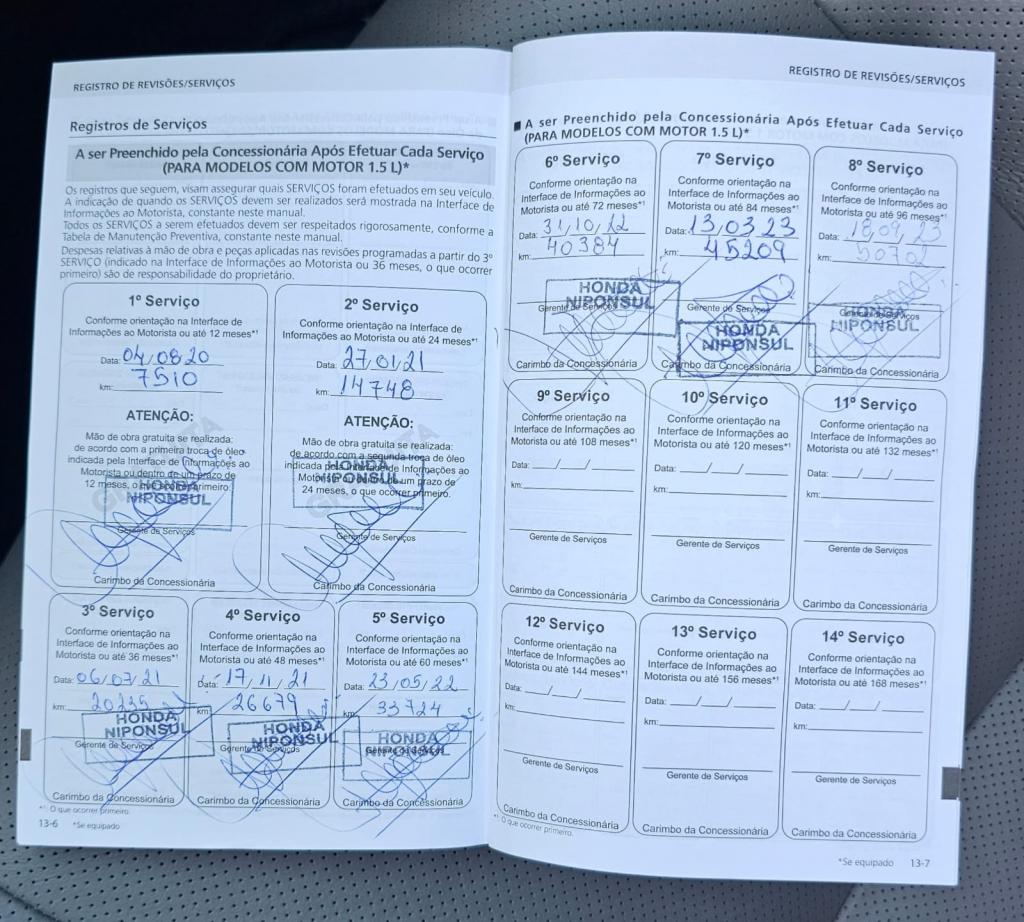 REGISTRO DE REVISÕES/SERVIÇOS
Registros de Serviços
A ser Preenchido pela Concessionária Após Efetuar Cada Serviço
(PARA MODELOS COM MOTOR 1.5 L)*
Os registros que seguem, visam assegurar quais SERVIÇOS foram efetuados em seu veículo.
A indicação de quando os SERVIÇOS devem ser realizados será mostrada na Interface de
Informações ao Motorista, constante neste manual.
Todos os SERVIÇOS a serem efetuados devem ser respeitados rigorosamente, conforme a
Tabela de Manutenção Preventiva, constante neste manual.
Despesas relativas à mão de obra e peças aplicadas nas revisões programadas a partir do 3º
SERVIÇO (indicado na Interface de Informações ao Motorista ou 36 meses, o que ocorrer
primeiro) são de responsabilidade do proprietário.
1º Serviço
Conforme orientação na Interface de
Informações ao Motorista ou até 12 meses*¹
Data: 04/08/20
km: 7510
ATENÇÃO:
Mão de obra gratuita se realizada:
de acordo com a primeira troca de óleo
indicada pela Interface de Informações ao
Motorista ou dentro de um prazo de
12 meses, o que ocorrer primeiro
HONDA
NIPONSUL
Gerente de Serviços
Carimbo da Concessionária
2º Serviço
Conforme orientação na Interface de
Informações ao Motorista ou até 24 meses*¹
Data: 27/01/21
km: 14748
ATENÇÃO:
Mão de obra gratuita se realizada:
de acordo com a segunda troca de óleo
indicada pela Interface de Informações ao
Motorista ou dentro de um prazo de
24 meses, o que ocorrer primeiro.
HONDA
NIPONSUL
Gerente de Serviços
Carimbo da Concessionária
3º Serviço
Conforme orientação na
Interface de Informações ao
Motorista ou até 36 meses*¹
Data: 06/07/21
km: 20235
HONDA
NIPONSUL
Gerente de Serviços
Carimbo da Concessionária
4º Serviço
Conforme orientação na
Interface de Informações ao
Motorista ou até 48 meses*¹
Data: 17/11/21
km: 26679
HONDA
NIPONSUL
Gerente de Serviços
Carimbo da Concessionária
5º Serviço
Conforme orientação na
Interface de Informações ao
Motorista ou até 60 meses*¹
Data: 23/05/22
km: 33724
HONDA
NIPONSUL
Gerente de Serviços
Carimbo da Concessionária
*¹ O que ocorrer primeiro.
13-6 *Se equipado
REGISTRO DE REVISÕES/SERVIÇOS
■ A ser Preenchido pela Concessionária Após Efetuar Cada Serviço
(PARA MODELOS COM MOTOR 1.5 L)*
6º Serviço
Conforme orientação na
Interface de Informações ao
Motorista ou até 72 meses*¹
Data: 31/10/22
km: 40384
HONDA
NIPONSUL
Gerente de Serviços
Carimbo da Concessionária
7º Serviço
Conforme orientação na
Interface de Informações ao
Motorista ou até 84 meses*¹
Data: 13/03/23
km: 45209
Gerente de Serviços
HONDA
NIPONSUL
Carimbo da Concessionária
8º Serviço
Conforme orientação na
Interface de Informações ao
Motorista ou até 96 meses*¹
Data: 18/09/23
km:
HONDA
NIPONSUL
Gerente de Serviços
Carimbo da Concessionária
9º Serviço
Conforme orientação na
Interface de Informações ao
Motorista ou até 108 meses*¹
Data: __/__/__
km:
Gerente de Serviços
Carimbo da Concessionária
10º Serviço
Conforme orientação na
Interface de Informações ao
Motorista ou até 120 meses*¹
Data: __/__/__
km:
Gerente de Serviços
Carimbo da Concessionária
11º Serviço
Conforme orientação na
Interface de Informações ao
Motorista ou até 132 meses*¹
Data: __/__/__
km:
Gerente de Serviços
Carimbo da Concessionária
12º Serviço
Conforme orientação na
Interface de Informações ao
Motorista ou até 144 meses*¹
Data: __/__/__
km:
Gerente de Serviços
Carimbo da Concessionária
13º Serviço
Conforme orientação na
Interface de Informações ao
Motorista ou até 156 meses*¹
Data: __/__/__
km:
Gerente de Serviços
Carimbo da Concessionária
14º Serviço
Conforme orientação na
Interface de Informações ao
Motorista ou até 168 meses*¹
Data: __/__/__
km:
Gerente de Serviços
Carimbo da Concessionária
*¹ O que ocorrer primeiro.
*Se equipado 13-7